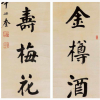 金樽酒
壽梅花